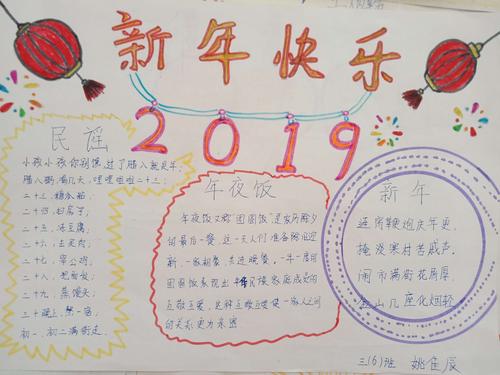 新年快乐
2019
民谣
小孩小孩你别馋,过了腊八就是年,
腊八粥,喝几天,哩哩啦啦二十三;
二十三,糖瓜粘;
二十四,扫房子;
二十五,冻豆腐;
二十六,去买肉;
二十七,宰公鸡;
二十八,把面发;
二十九,蒸馒头;
三十晚上熬一宿;
初一、初二满街走。
年夜饭
年夜饭又称"团圆饭"是农历除夕
的最后一餐,这一天人们准备除旧迎
新,一家相聚,共进晚餐。一年一度的
团圆饭表现出中华民族家庭成员的
互敬互爱,这种互敬互爱使一家人之间
的关系更为紧密
新年
近闻鞭炮庆年更,
掩没寒村苦咸声。
闹市满街花屑厚,
金山几座化烟轻
三(6)班 姚佳辰